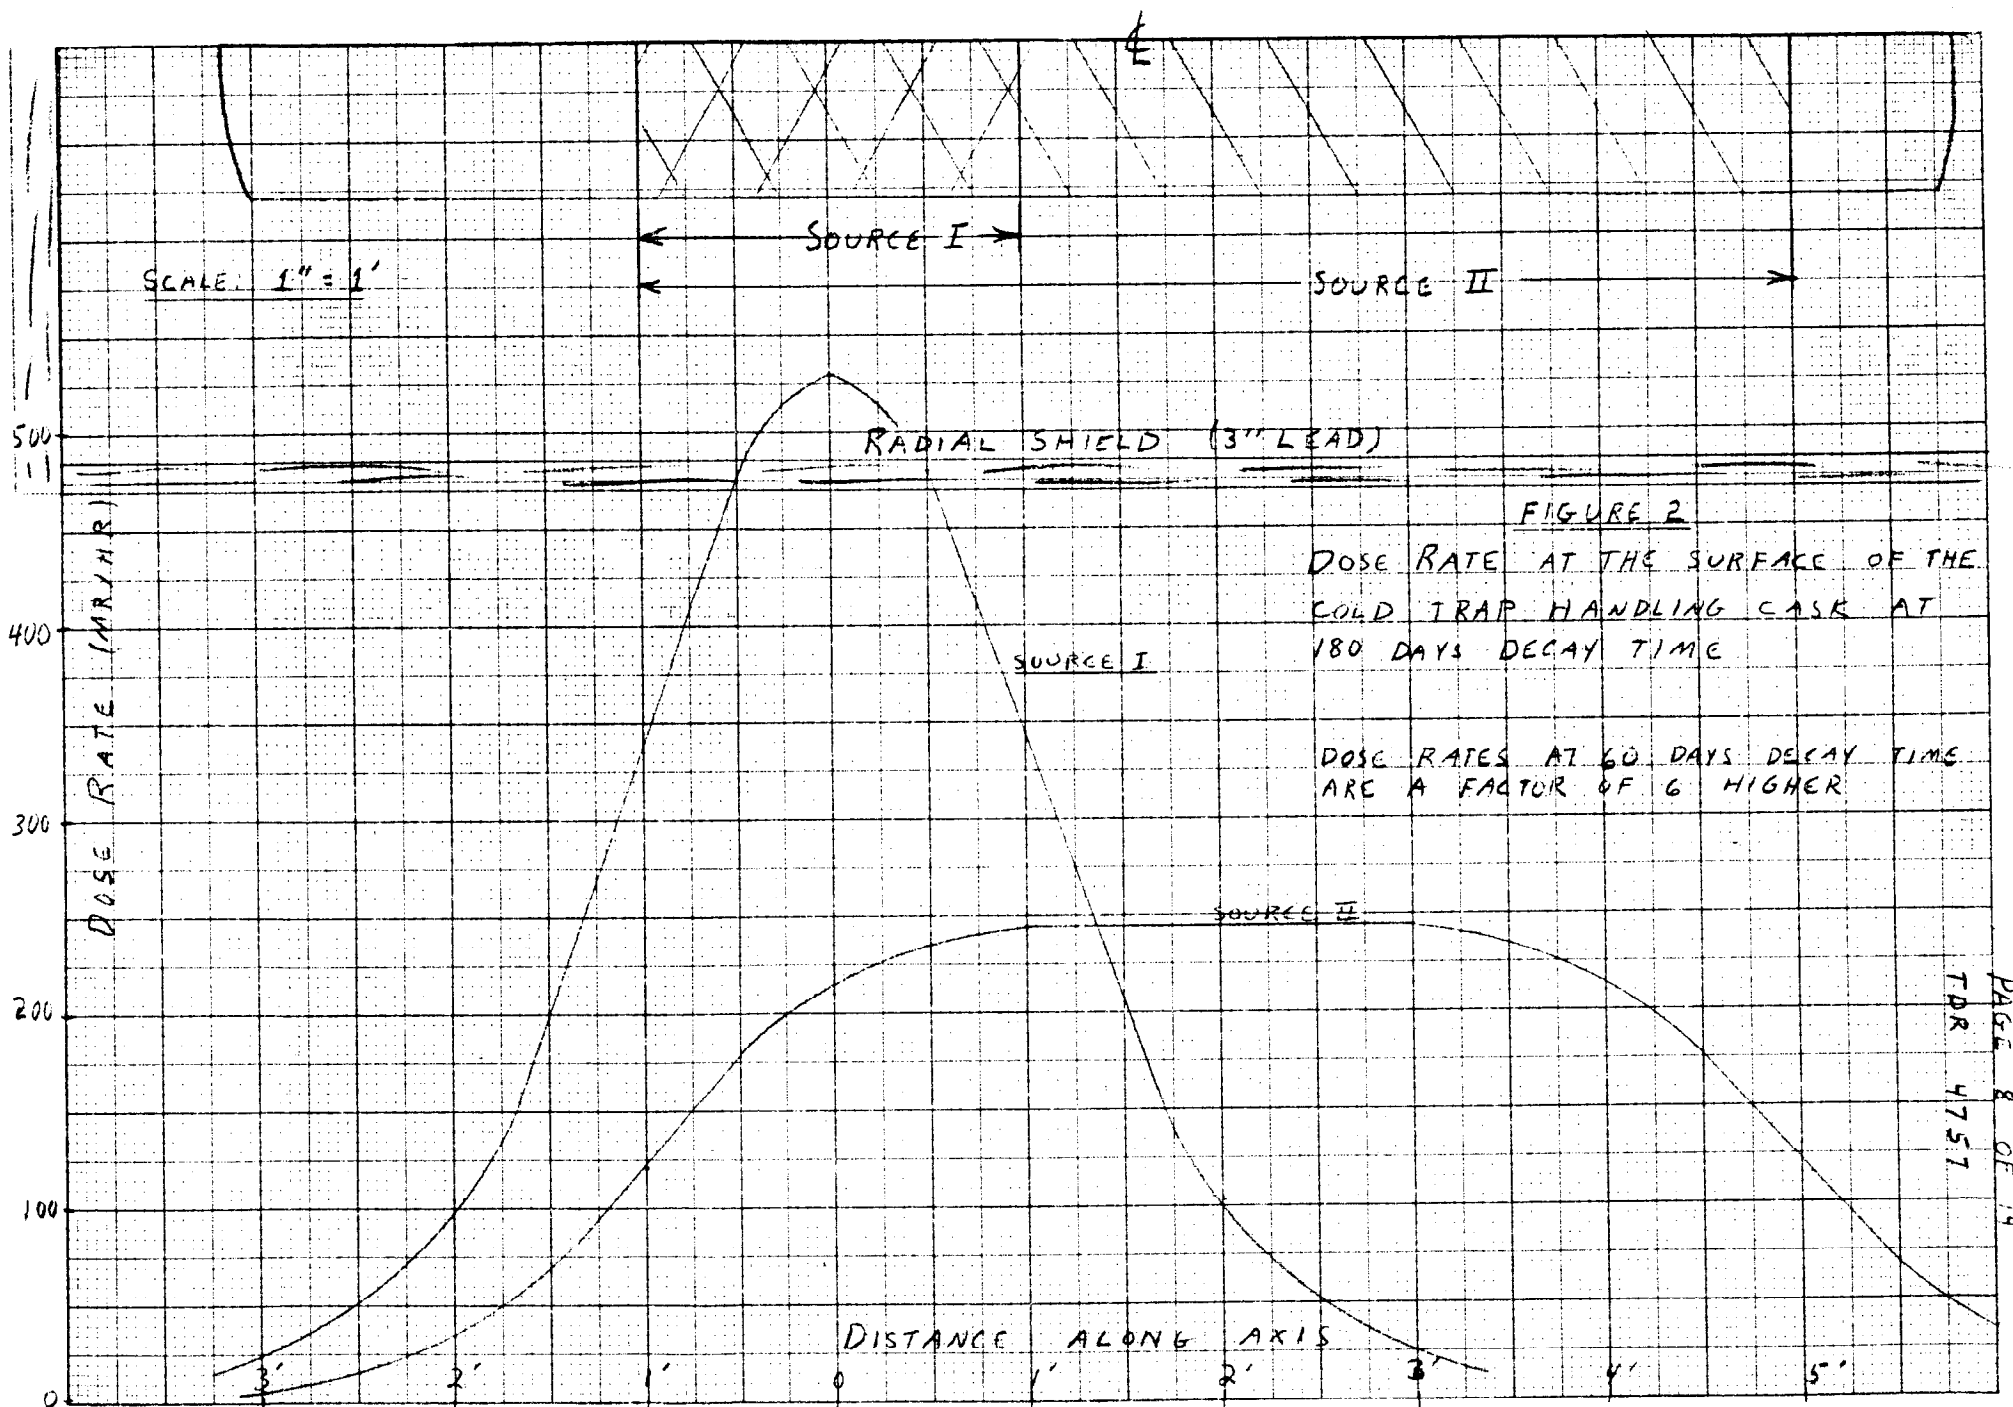 ℄
SOURCE I
SCALE: 1" = 1'
SOURCE II
500
RADIAL SHIELD (3" LEAD)
FIGURE 2
DOSE RATE AT THE SURFACE OF THE
COLD TRAP HANDLING CASK AT
180 DAYS DECAY TIME
400
SOURCE I
DOSE RATES AT 60 DAYS DECAY TIME
ARE A FACTOR OF 6 HIGHER
300
DOSE RATE (MR/HR)
SOURCE II
200
100
DISTANCE ALONG AXIS
0
3' 2' 1' 0 1' 2' 3' 4' 5'
PAGE 8 OF 14
TDR 4757